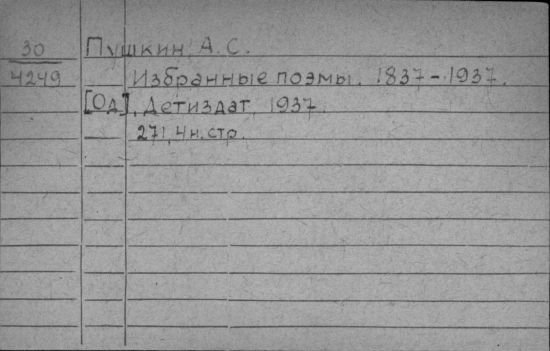 30 Пушкин, А.С.
4249 Избранные поэмы. 1837-1937.
[Од], Детиздат, 1937.
271, 4 н. стр.